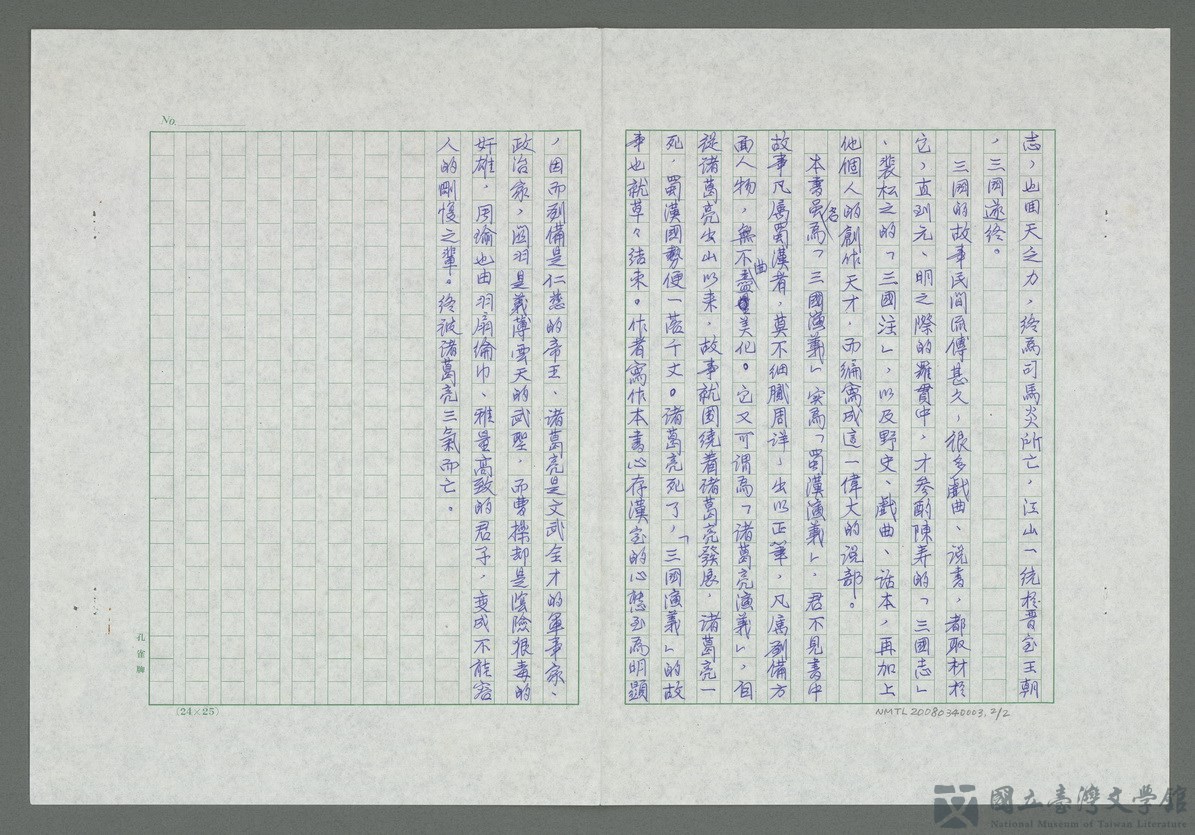 志，也回天之力，終為司馬炎所亡，江山一統於晉室王朝
，三國遂終。
三國的故事民間流傳甚久，很多戲曲、說書，都取材於
它，直到元、明之際的羅貫中，才參酌陳寿的「三國志」
、裴松之的「三國注」，以及野史、戲曲、話本，再加上
他個人的創作天才，而編寫成這一偉大的説部。
本書虽名為「三國演義」实為「蜀漢演義」，君不見書中
故事凡屬蜀漢者，莫不細膩周详，出以正筆，凡属刘備方
面人物，無不曲盡美化。它又可謂為「諸葛亮演義」，自
從诸葛亮出山以来，故事就围绕着诸葛亮發展，诸葛亮一
死，蜀漢國勢便一落千丈。诸葛亮死了，「三國演義」的故
事也就草々结束。作者寫作本書心存漢室的心態至為明顯
，因而刘備是仁慈的帝王、诸葛亮是文武全才的軍事家、
政治家，関羽是義薄雲天的武聖，而曹操却是陰險狠毒的
奸雄，周瑜也由羽扇綸巾、雅量高致的君子，变成不能容
人的剛愎之輩。终被诸葛亮三氣而亡。
No.
(24×25)
孔雀牌
NMTL20080340003. 2/2
國立臺灣文學館
National Museum of Taiwan Literature